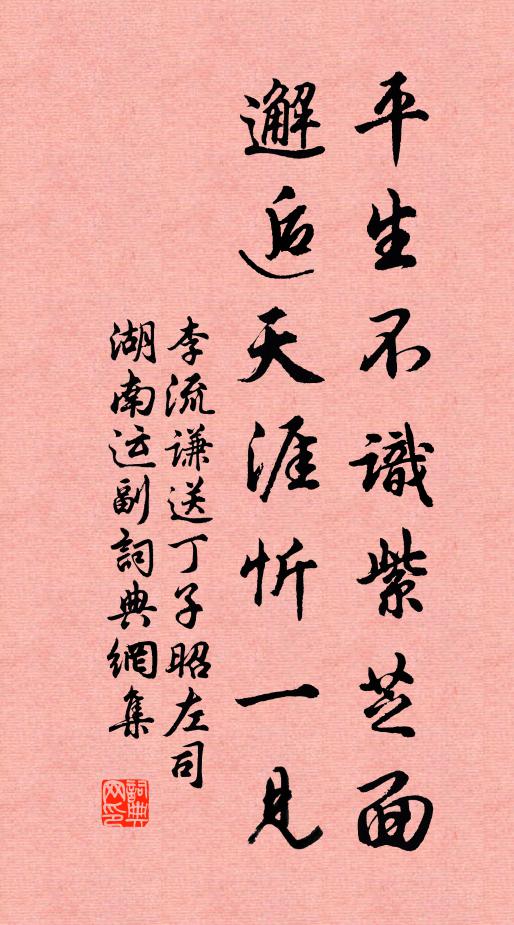 平生不識紫芝面
邂逅天涯忻一見
李流謙送丁子昭左司
湖南运副詞典網集
詞典网印